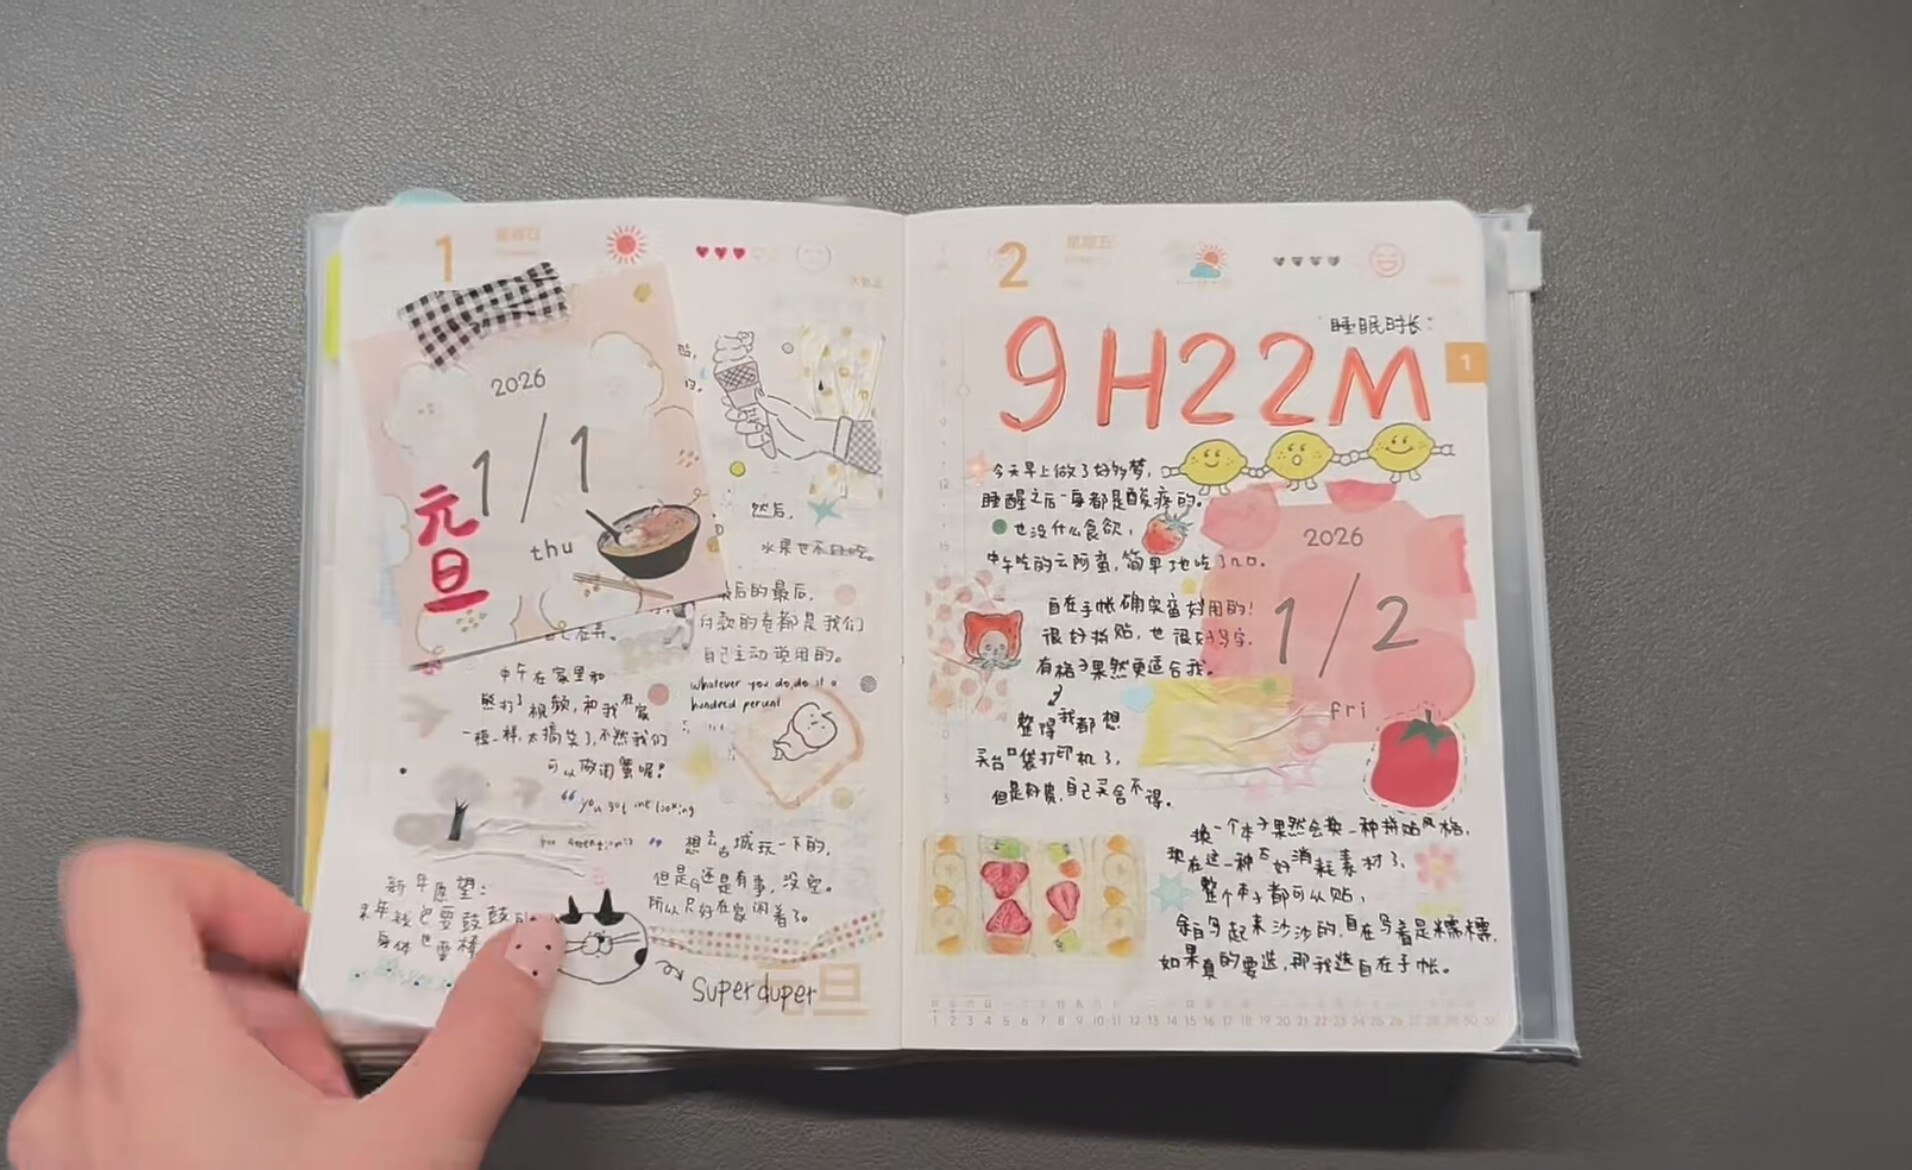 1
2026
1/1
元旦
thu
然后，
水果也不好吃。
最后的最后，
付款的卷都是我们
自己主动说用的。
whatever you do, do it a
hundred percent
中午在家里和
打了视频，和我在家
一模一样，太搞笑了，不然我们
可以做闺蜜呢？
“you got me looking
for attention”
想去古城玩一下的，
但是G还是有事，没空。
所以只好在家闲着了。
新年愿望：
身体也要
Super duper
元旦
2
星期五
睡眠时长：
9H22M
1
今天早上做了好多梦，
睡醒之后一身都是酸疼的。
也没什么食欲，
中午吃的云阿蛮，简单地吃了几口。
2026
1/2
fri
自在手帐确实蛮好用的！
很好拼贴，也很好写字，
有格子果然更适合我。
整得我都想
买台口袋打印机了，
但是好贵，自己买舍不得。
换一个本子果然会换一种拼贴风格，
现在这一种好消耗素材了，
整个本子都可以贴，
余白写起来沙沙的，自在写着是糯糯，
如果真的要选，那我选自在手帐。
1 2 3 4 5 6 7 8 9 10 11 12 13 14 15 16 17 18 19 20 21 22 23 24 25 26 27 28 29 30 31